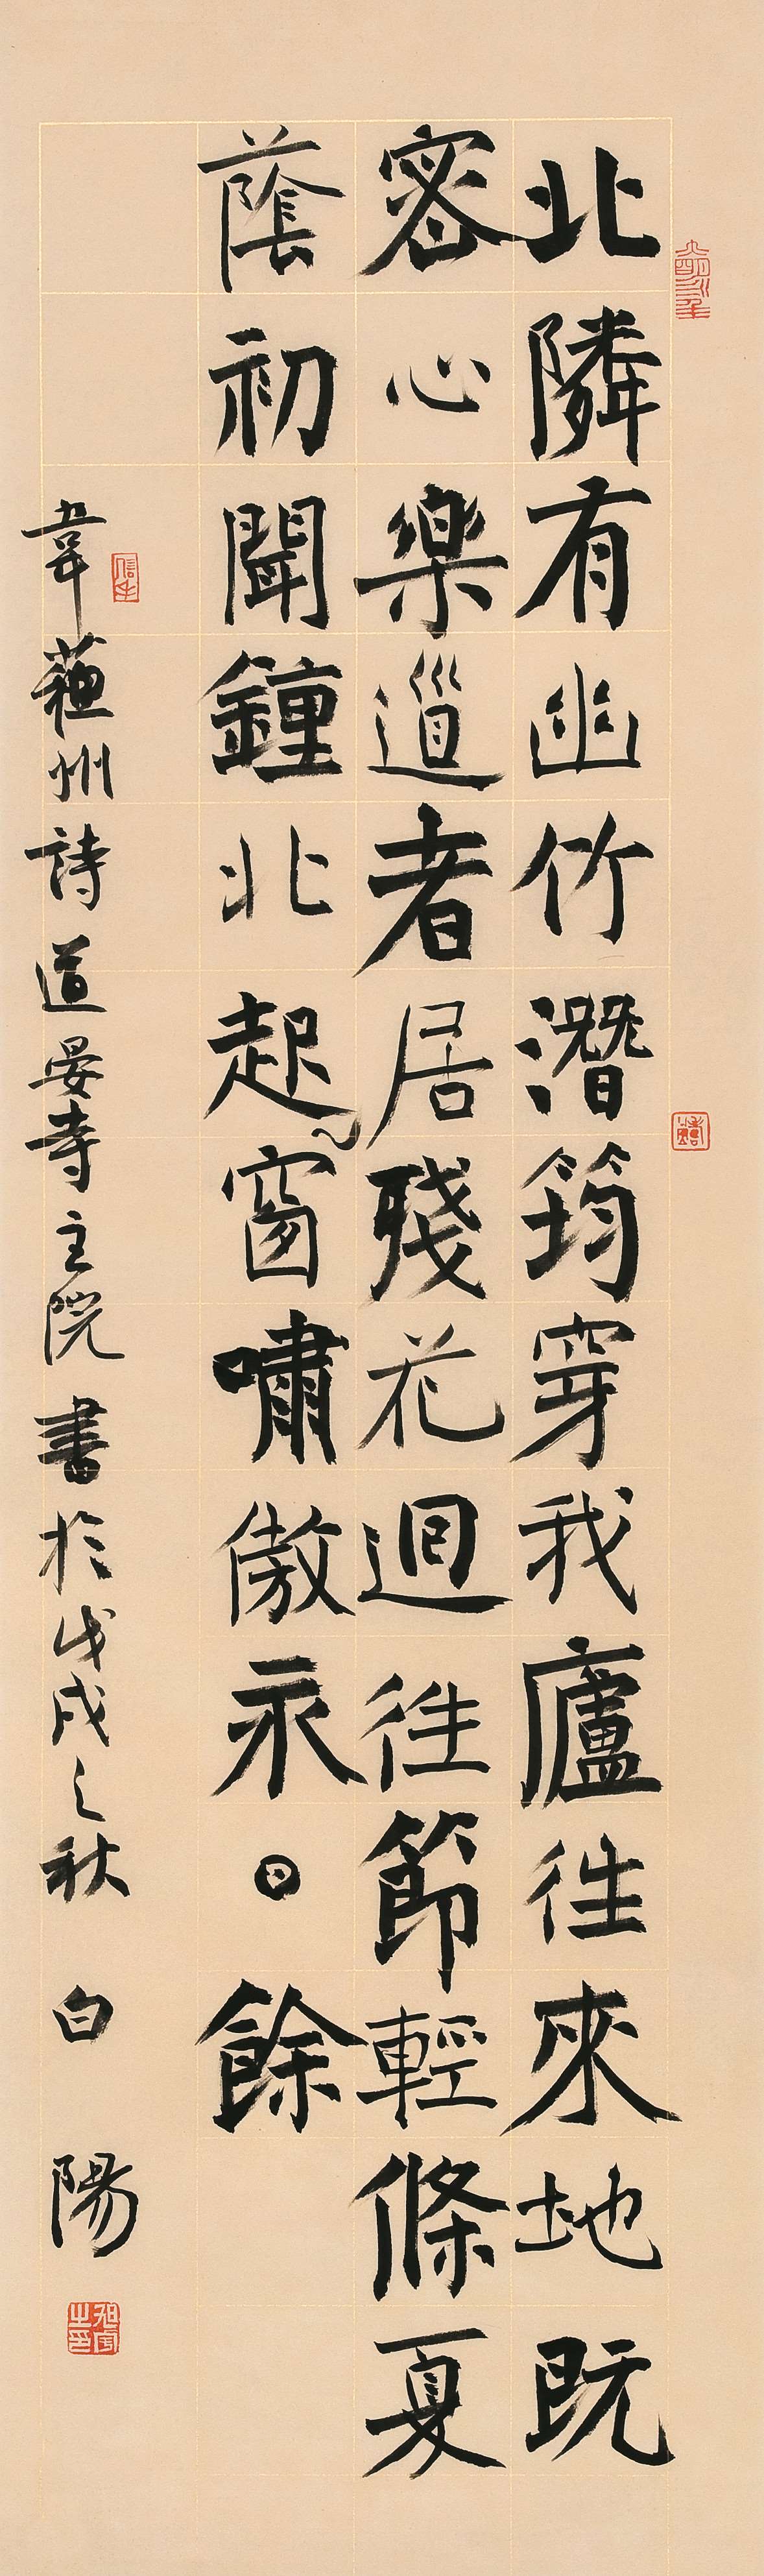 北隣有幽竹潛筠穿我廬往來地既
密心樂道者居殘花迴往節輕條夏
蔭初聞鐘北起窗嘯傲永日餘
韋蘇州詩道晏寺主院書於戊戌之秋白陽